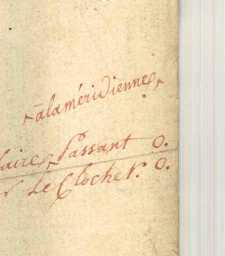 + àlaméridienne, +
laire, Passant o.
Le Clocher. o.